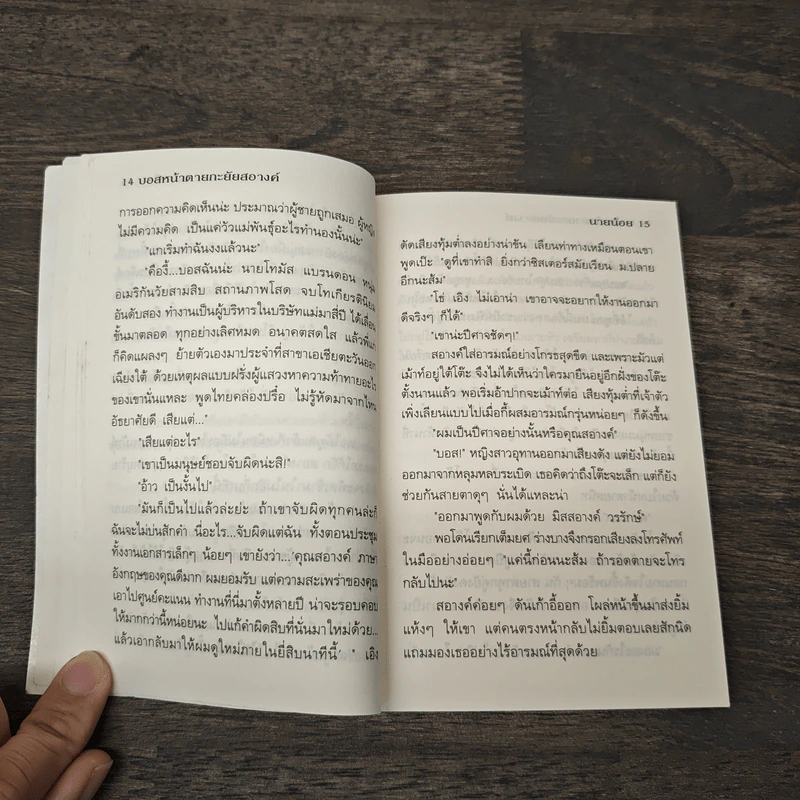 14 บอสหน้าตายกะยัยสอางค์
การออกความคิดเห็นน่ะ ประมาณว่าผู้ชายถูกเสมอ ผู้หญิง
ไม่มีความคิด เป็นแค่วัวแม่พันธุ์อะไรทำนองนั้นน่ะ"
"แกเริ่มทำฉันงงแล้วนะ"
"คืองี้...บอสฉันน่ะ นายโทมัส แบรนดอน หนุ่ม
อเมริกันวัยสามสิบ สถานภาพโสด จบโทเกียรตินิยม
อันดับสอง ทำงานเป็นผู้บริหารในบริษัทแม่มาสี่ปี ได้เลื่อน
ขั้นมาตลอด ทุกอย่างเลิศหมด อนาคตสดใส แล้วพี่แก
ก็คิดแผลงๆ ย้ายตัวเองมาประจำที่สาขาเอเชียตะวันออก
เฉียงใต้ ด้วยเหตุผลแบบฝรั่งผู้แสวงหาความท้าทายอะไร
ของเขานั่นแหละ พูดไทยคล่องปรื๋อ ไม่รู้หัดมาจากไหน
อัธยาศัยดี เสียแต่..."
"เสียแต่อะไร"
"เขาเป็นมนุษย์ชอบจับผิดน่ะสิ!"
"อ้าว เป็นงั้นไป"
"มันก็เป็นไปแล้วล่ะย่ะ ถ้าเขาจับผิดทุกคนล่ะก็
ฉันจะไม่บ่นสักคำ นี่อะไร...จับผิดแต่ฉัน ทั้งตอนประชุม
ทั้งงานเอกสารเล็กๆ น้อยๆ เขายังว่า...'คุณสอางค์ ภาษา
อังกฤษของคุณดีมาก ผมยอมรับ แต่ความสะเพร่าของคุณ
เอาไปศูนย์คะแนน ทำงานที่นี่มาตั้งหลายปี น่าจะรอบคอบ
ให้มากกว่านี้หน่อยนะ ไปแก้คำผิดสิบที่นั่นมาใหม่ด้วย...
แล้วเอากลับมาให้ผมดูใหม่ภายในยี่สิบนาทีนี้' " เอิง
นายน้อย 15
ดัดเสียงทุ้มต่ำลงอย่างน่าขัน เลียนท่าทางเหมือนตอนเขา
พูดเป๊ะ "ดูที่เขาทำสิ ยิ่งกว่าซิสเตอร์สมัยเรียน ม.ปลาย
อีกนะส้ม"
"โธ่ เอิง ไม่เอาน่า เขาอาจจะอยากให้งานออกมา
ดีจริงๆ ก็ได้"
"เขาน่ะปีศาจชัดๆ!"
สอางค์ใส่อารมณ์อย่างโกรธสุดขีด และเพราะมัวแต่
เม้าท์อยู่ใต้โต๊ะ จึงไม่ได้เห็นว่าใครมายืนอยู่อีกฝั่งของโต๊ะ
ตั้งนานแล้ว พอเริ่มอ้าปากจะเม้าท์ต่อ เสียงทุ้มต่ำที่เจ้าตัว
เพิ่งเลียนแบบไปเมื่อกี้ผสมอารมณ์กรุ่นหน่อยๆ ก็ดังขึ้น
"ผมเป็นปีศาจอย่างนั้นหรือคุณสอางค์"
"บอส!" หญิงสาวอุทานออกมาเสียงดัง แต่ยังไม่ยอม
ออกมาจากหลุมหลบระเบิด เธอคิดว่าถึงโต๊ะจะเล็ก แต่ก็ยัง
ช่วยกันสายตาดุๆ นั่นได้แหละน่า
"ออกมาพูดกับผมด้วย มิสสอางค์ วรรักษ์"
พอโดนเรียกเต็มยศ ร่างบางจึงกรอกเสียงลงโทรศัพท์
ในมืออย่างอ่อยๆ "แค่นี้ก่อนนะส้ม ถ้ารอดตายจะโทร
กลับไปนะ"
สอางค์ค่อยๆ ดันเก้าอี้ออก โผล่หน้าขึ้นมาส่งยิ้ม
แห้งๆ ให้เขา แต่คนตรงหน้ากลับไม่ยิ้มตอบเลยสักนิด
แถมมองเธออย่างไร้อารมณ์ที่สุดด้วย